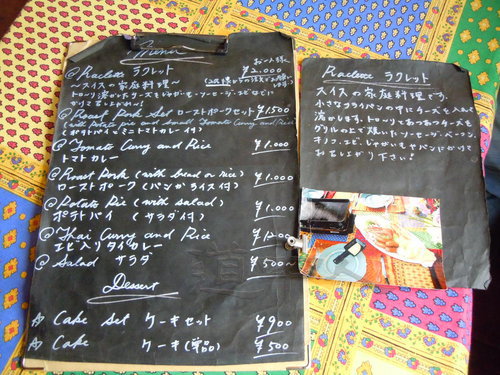 Menu
@Raclette ラクレット
お一人様
¥2,000
~スイスの家庭料理~
@Roast Pork Set ローストポークセット ¥1500
(ポテトパイ・ミニトマトカレー付)
@Tomato Curry and Rice ¥1,000
トマトカレー
@Roast Pork (with bread or rice) ¥1,000
ローストポーク (パンかライス付)
@Potato Pie (with salad) ¥1,000
ポテトパイ (サラダ付)
@Thai Curry and Rice ¥1200
エビ入りタイカレー
@Salad サラダ ¥500~
Dessert
☆ Cake Set ケーキセット ¥900
☆ Cake ケーキ(単品) ¥500
Raclette ラクレット
スイスの家庭料理です。
小さなフライパンの中にチーズを入れて
溶かします。トローリとあつあつチーズを
グリルの上で焼いたソーセージ、ベーコン、
キノコ、エビ、じゃがいもやパンにかけて
お召し上がり下さい!